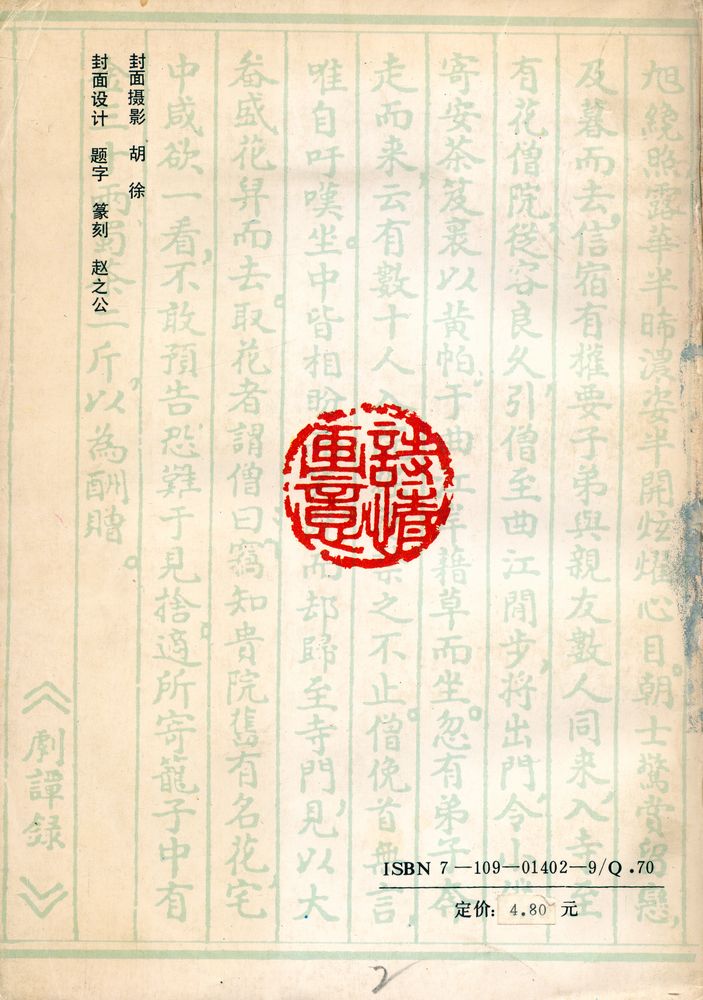 旭繞照露華半晞濃姿半開炫燿心目。朝士驚賞留戀,
及暮而去,信宿有權要子弟與親友數人同来,入寺至
有花僧院,從容良久引僧至曲江閒步,将出門,令小
寄安茶笈裹以黄帕,于曲江岸藉草而坐。忽有弟子奔
走而来,云有數十人入禁之不止。僧俛首無言,
唯自吁嘆。坐中皆相盼而却歸至寺門,見以大
畚盛花舁而去。取花者謂僧曰竊知貴院舊有名花,宅
中咸欲一看,不敢預告恐難于見捨。適所寄籠子中有
金三十兩蜀茶二斤,以為酬贈。
《劇譚録》
封面摄影 胡 徐
封面设计 题字 篆刻 赵之公
詩情畫意
ISBN 7—109—01402—9/Q.70
定价: 4.80 元
2